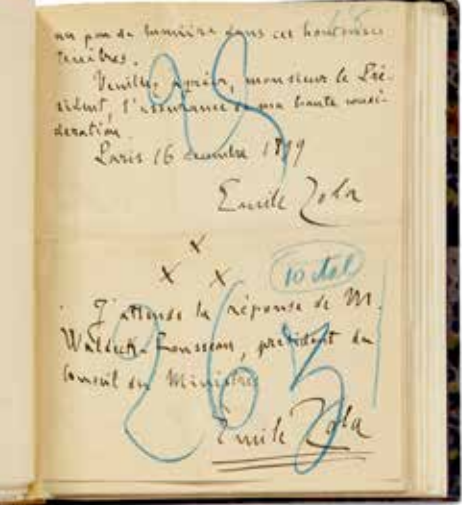 un peu de lumière dans ces honteuses
ténèbres.
Veuillez agréer, monsieur le Pré-
sident, l'assurance de ma haute consi-
dération.
Paris 16 décembre 1899
Emile Zola
x
x x
J'attends la réponse de M.
Waldeck-Rousseau, président du
Conseil des Ministres
Emile Zola